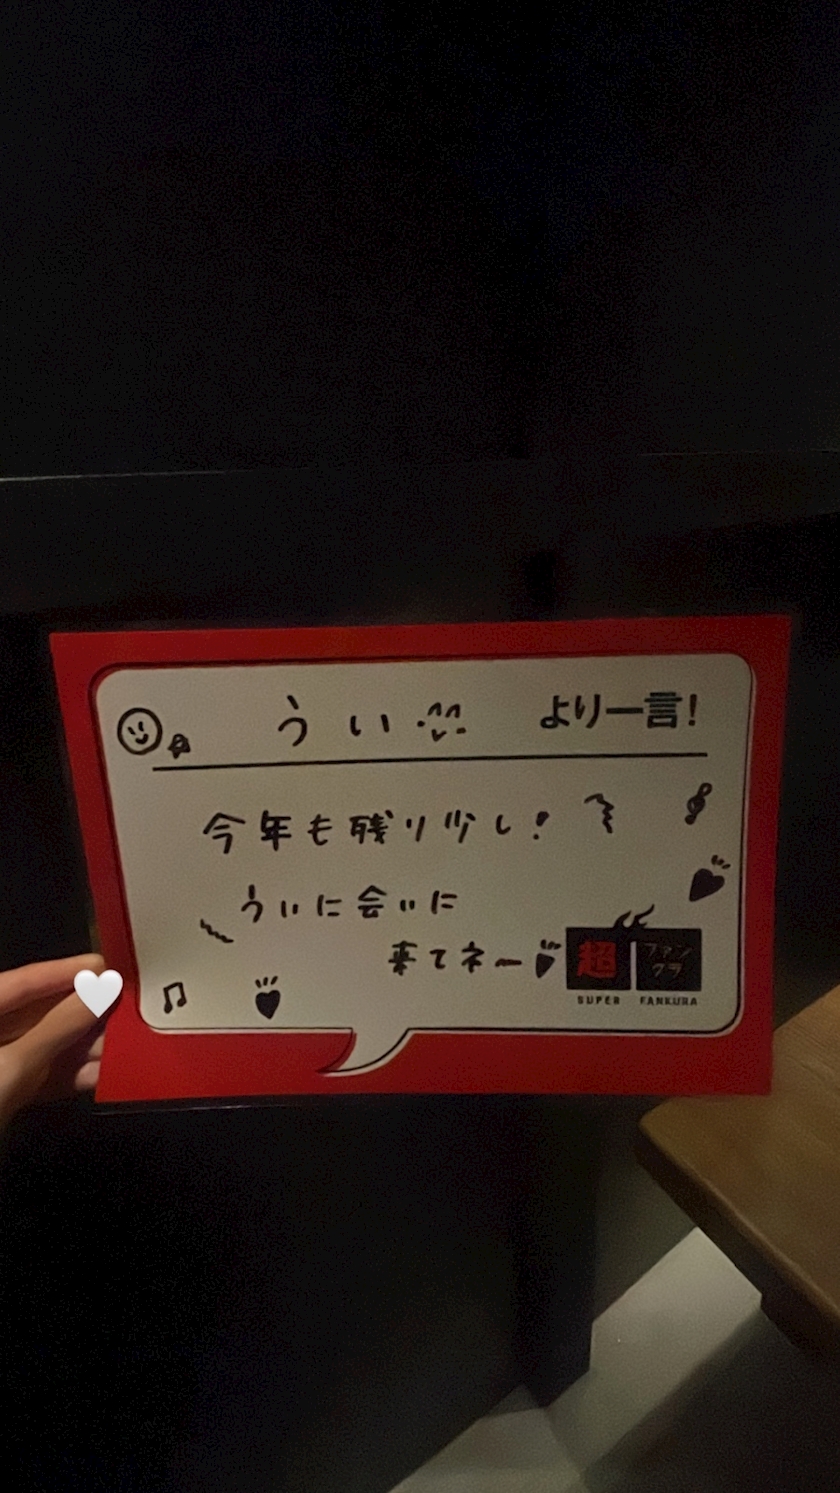 うい より一言!
今年も残り少し!
ういに会いに
来てネー
超 ファンクラ
SUPER FANKURA